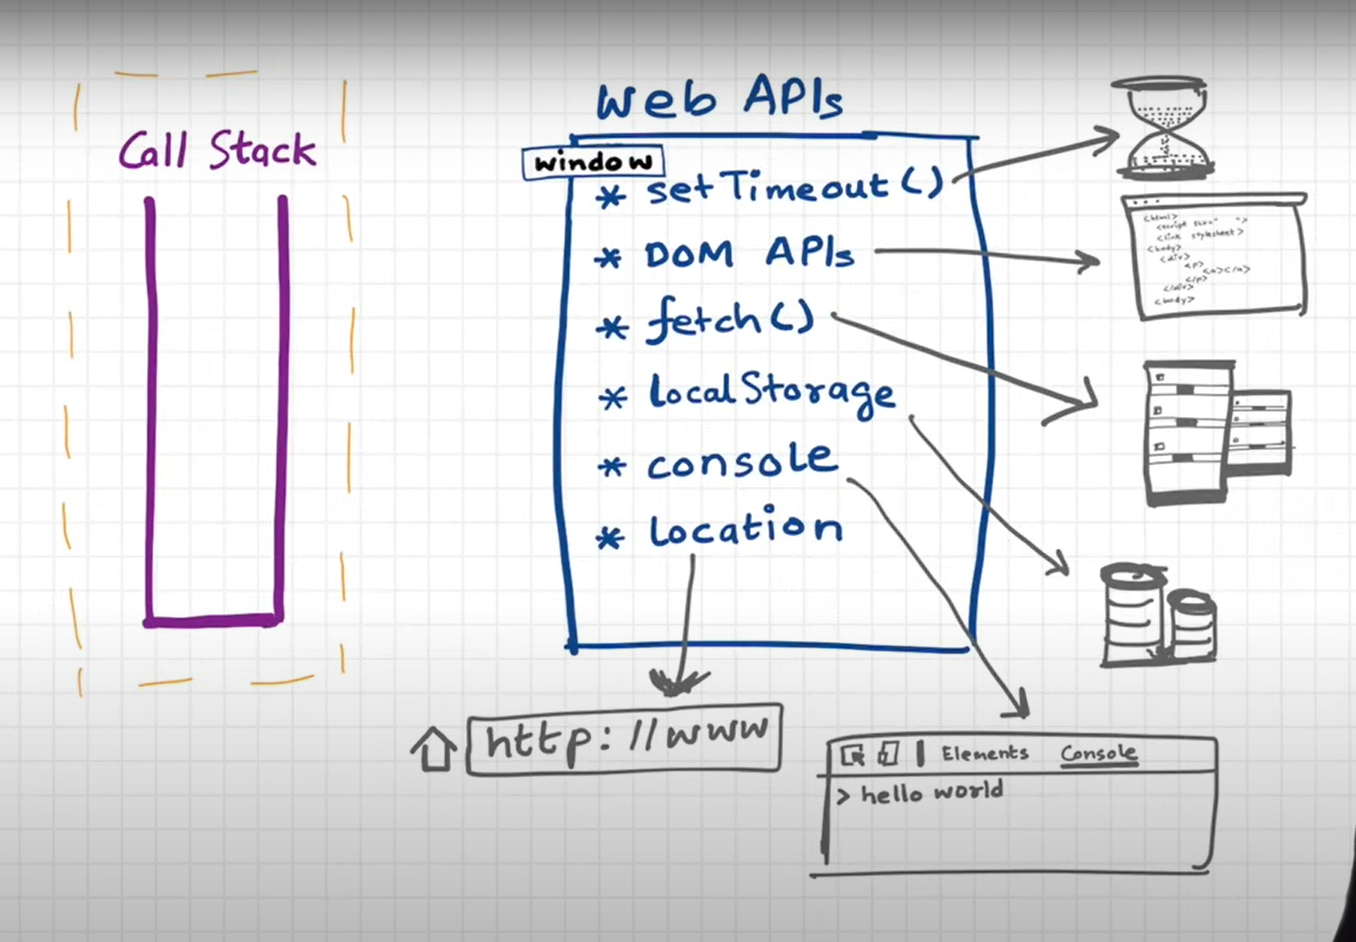 Call Stack
Web APIs
window
* setTimeout()
* DOM APIs
* fetch()
* localStorage
* console
* location
<html>
<script src=" ">
<link stylesheet>
<body>
<div>
<p>
<a></a>
</p>
</div>
<body>
http://www
Elements Console
> hello world